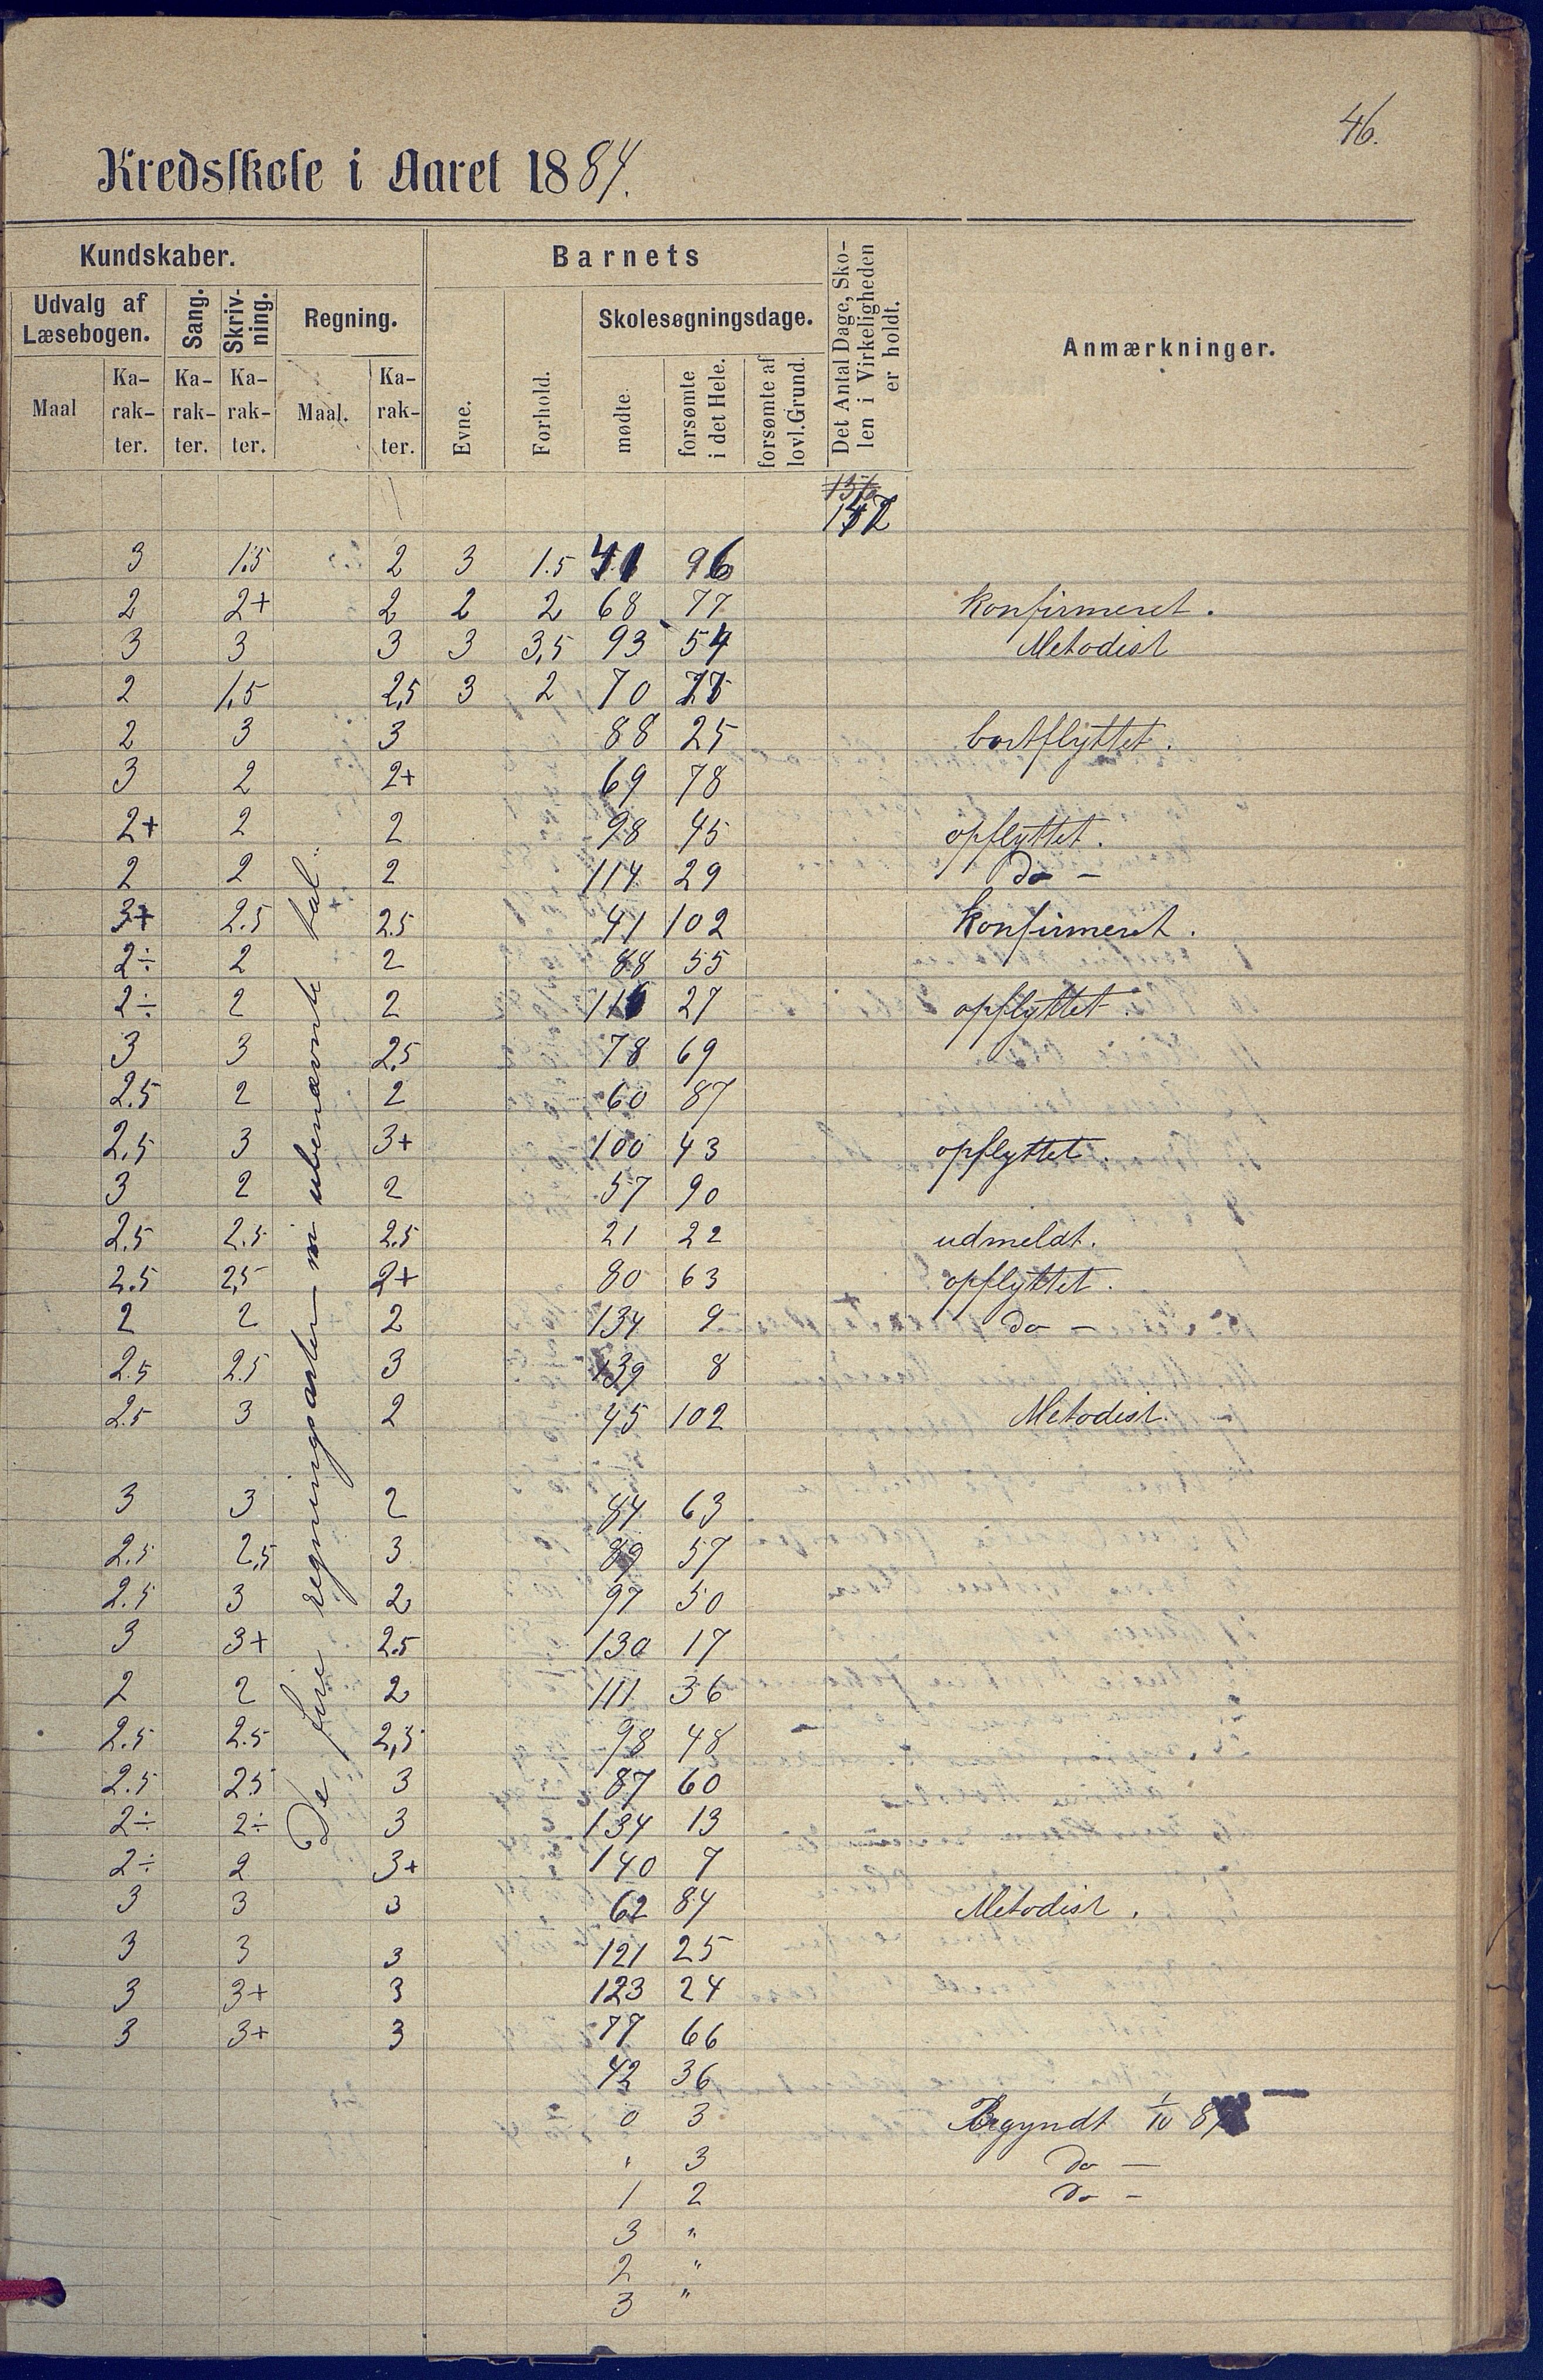 46.
Kredsskole i Aaret 1884.
Kundskaber. Barnets Det Antal Dage, Sko-len i Virkeligheden er holdt. Anmærkninger.
Udvalg af Læsebogen. Sang. Skriv-ning. Regning. Evne. Forhold. Skolesøgningsdage.
Maal Ka-rak-ter. Ka-rak-ter. Ka-rak-ter. Maal. Ka-rak-ter. mødte. forsømte i det Hele. forsømte af lovl. Grund.
147
De fire regningsarter m ubenævnte tal.
3 1.5 2 3 1.5 51 96
2 2+ 2 2 2 68 77 Konfirmeret.
3 3 3 3 3,5 93 54 Metodist
2 1,5 2,5 3 2 70
2 3 3 88 25 bortflyttet.
3 2 2+ 69 78
2+ 2 2 98 45 opflyttet.
2 2 2 114 29 do -
3+ 2.5 2.5 41 102 Konfirmeret.
2÷ 2 2 88 55
2÷ 2 2 116 27 opflyttet.
3 3 2,5 78 69
2.5 2 2 60 87
2,5 3 3+ 100 43 opflyttet.
3 2 2 57 90
2,5 2.5 2.5 21 22 udmeldt.
2.5 2,5 2+ 80 63 opflyttet.
2 2 2 134 9 do -
2.5 2.5 3 139 8
2.5 3 2 45 102 Metodist.
3 3 2 84 63
2.5 2,5 3 89 57
2.5 3 2 97 50
3 3+ 2.5 130 17
2 2 2 111 36
2.5 2.5 2,5 98 48
2.5 2.5 3 87 60
2÷ 2÷ 3 134 13
2÷ 2 3+ 140 7
3 3 3 62 84 Metodist.
3 3 3 121 25
3 3+ 3 123 24
3 3+ 3 77 66
42 36
0 3 Begyndt 1/10 84
" 3 do —
1 2 do -
3 "
2 "
3 "